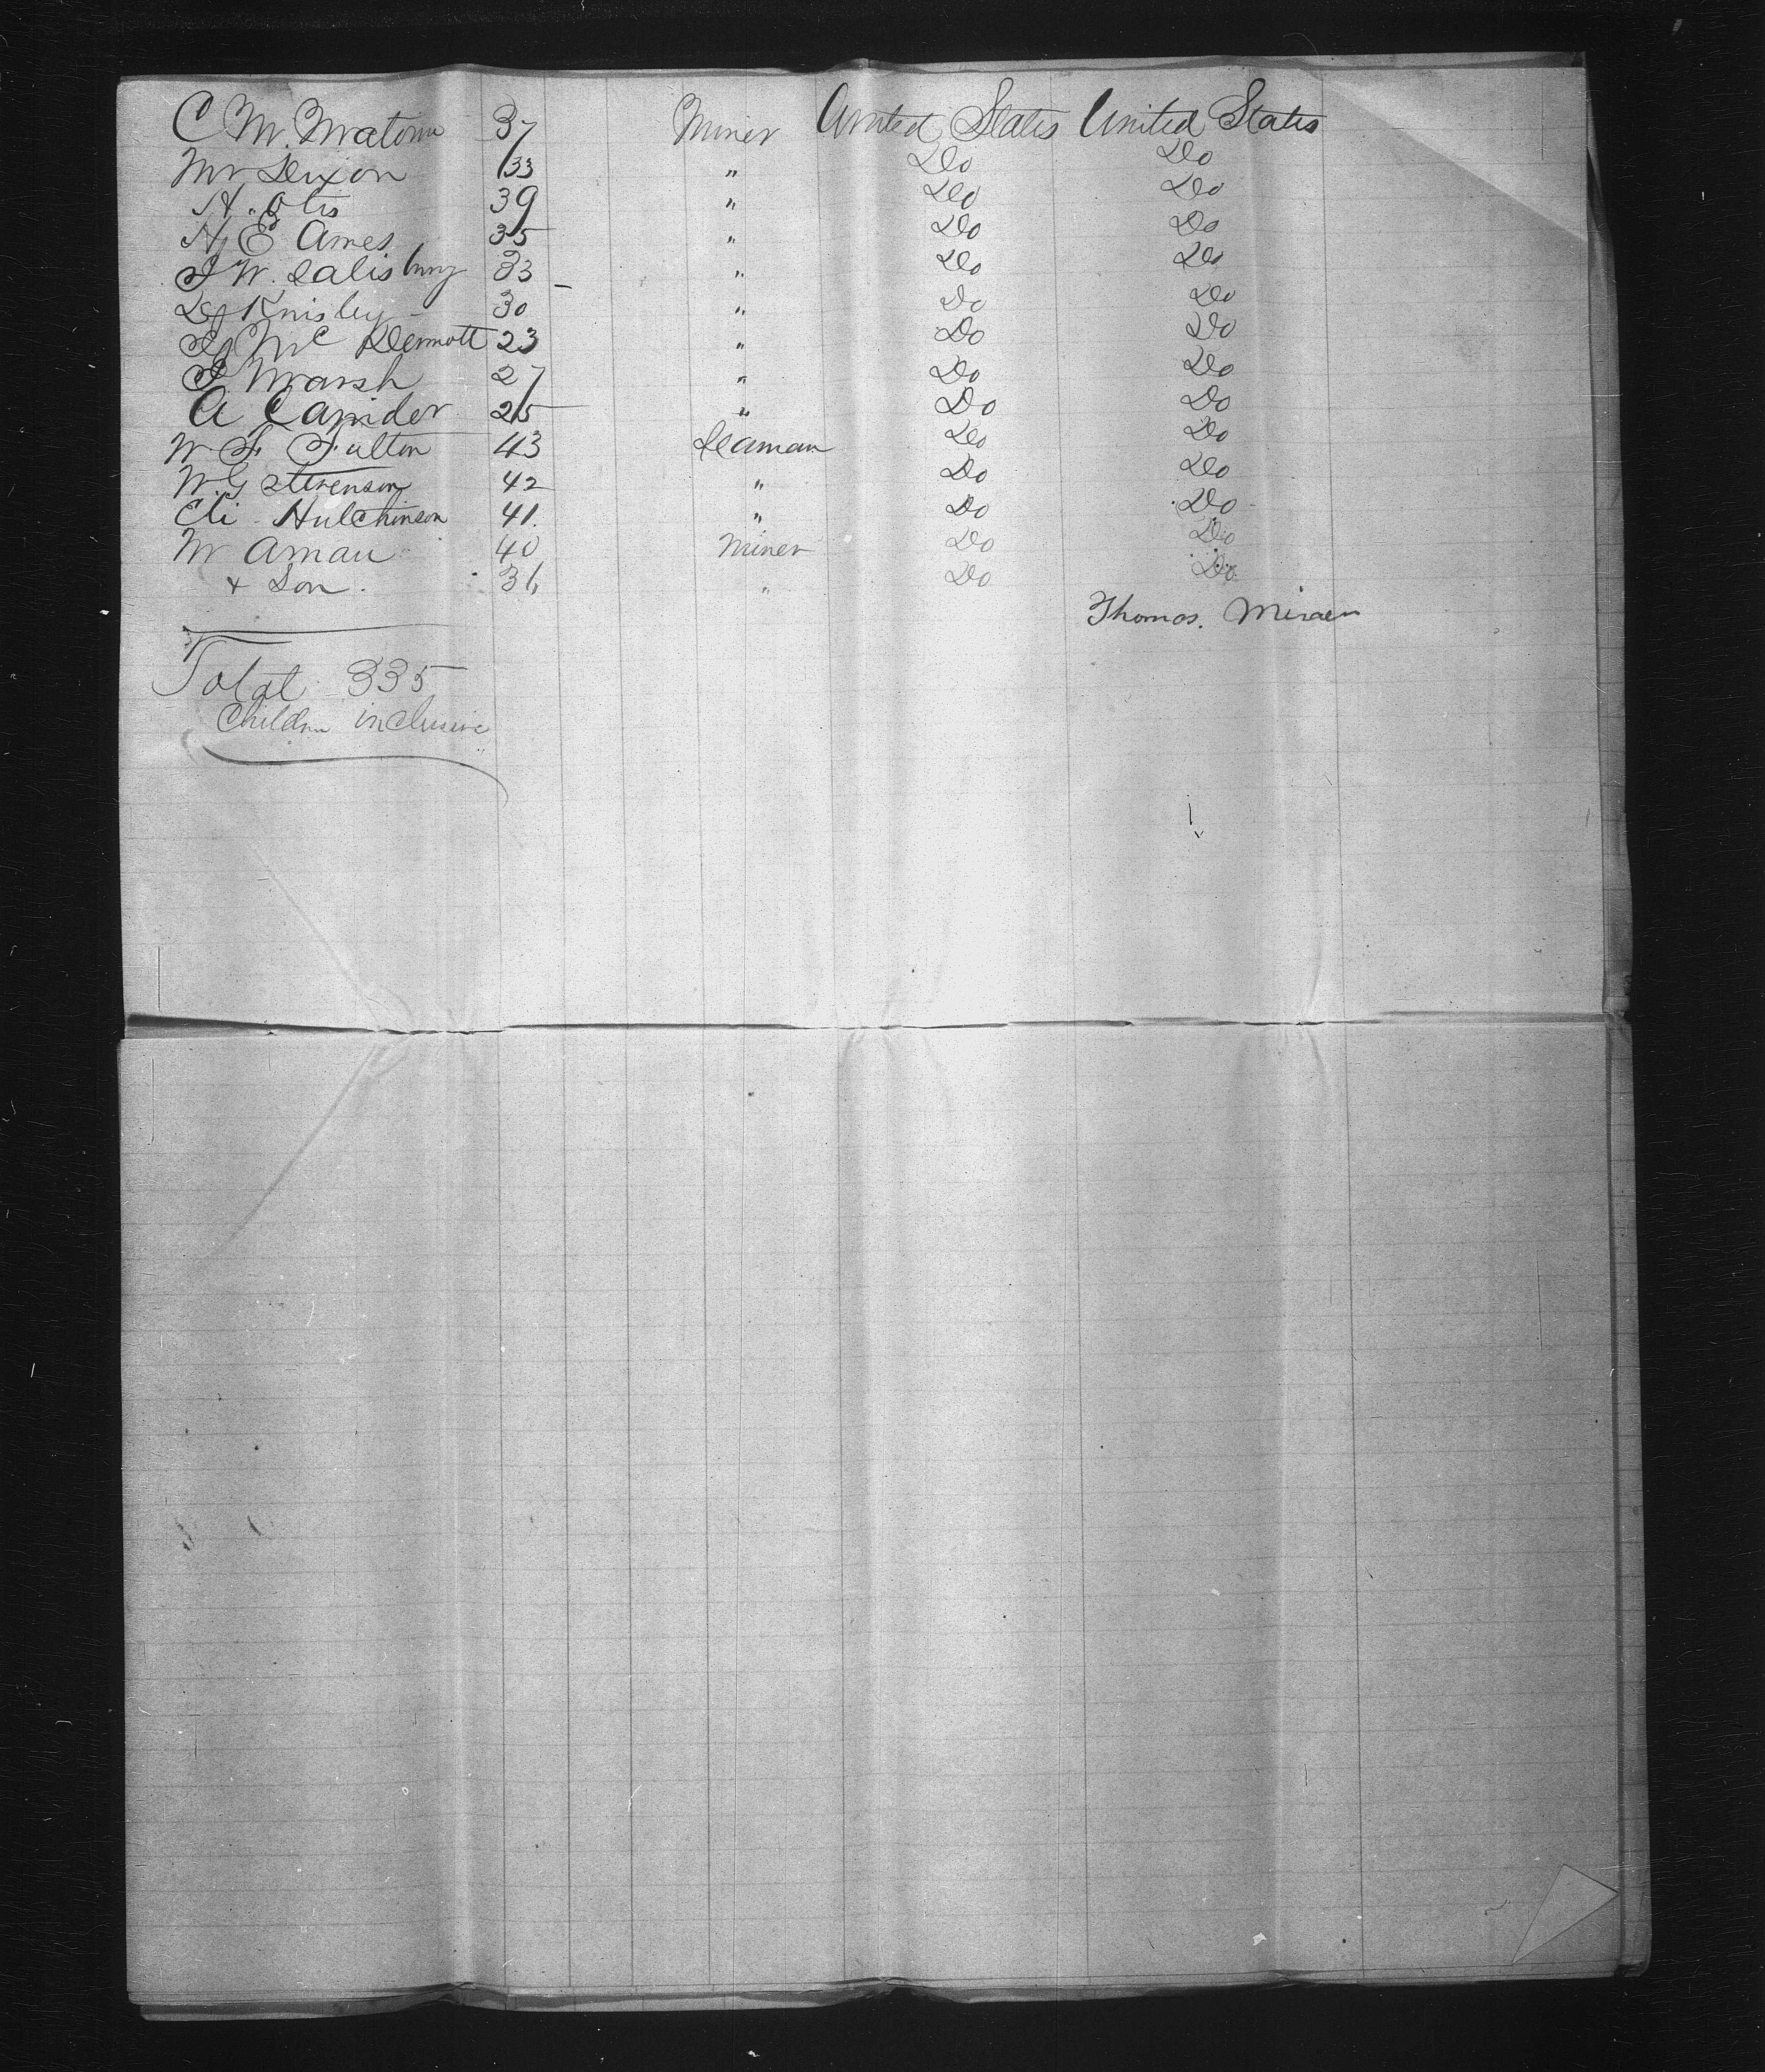 C M. Matom 37 Miner United States United States
Mr Dixon 33 " Do Do
H. Otis 39 " Do Do
H E Ames 35 " Do Do
J W. Salisbury 33 " Do Do
D Knisley 30 " Do Do
J McDermott 23 " Do Do
J Marsh 27 " Do Do
A 25 " Do Do
W F. Fulton 43 Seaman Do Do
W. G Stevenson 42 " Do Do
Eli Hutchinson 41. " Do Do
Mr Aman 40 Miner Do Do
+ Son. 36 " Do Do
Thomas.
Total 335
Children inclusive